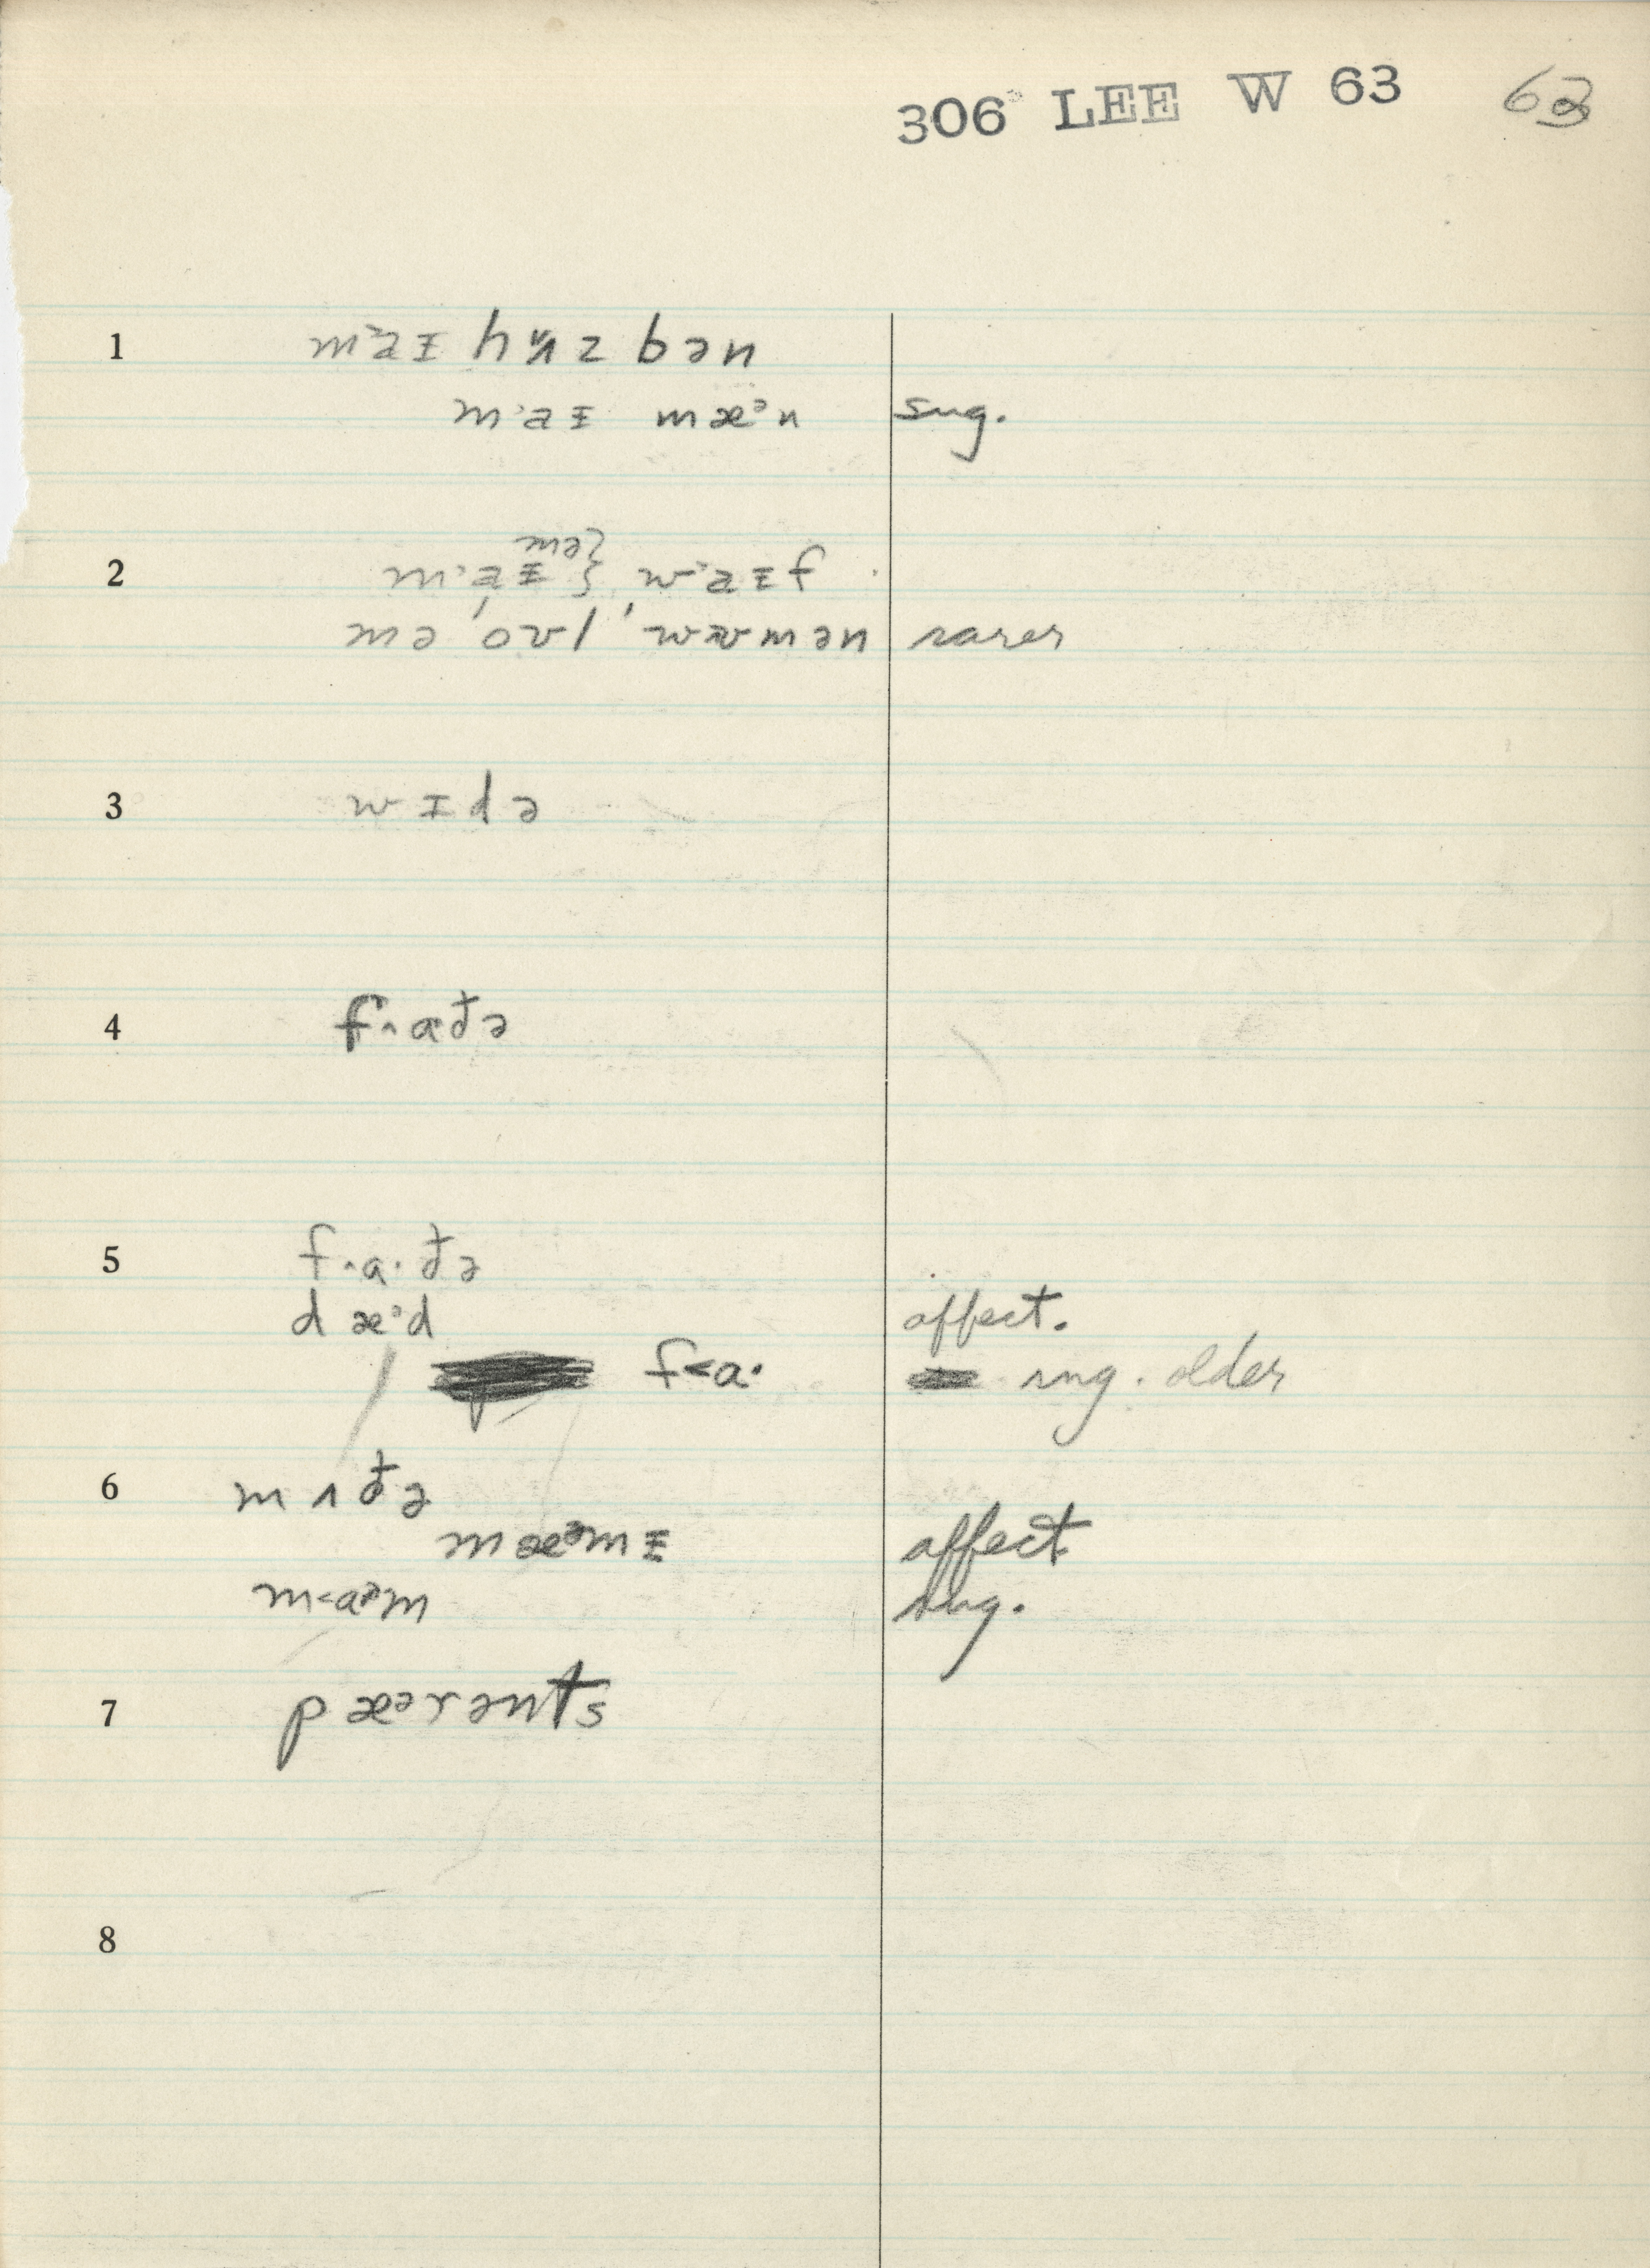 306 LEE W 63 63
1 m'aɪ hʌzbən
m'aɪ mæᵊn sug.
2 mə}
m'aɪ} w'aɪf
mə ˌoʊl ˈwʊmən rarer
3 wɪdə
4 f˂ɑðə
5 f˂a·ðə
dæᵊd affect.
f˂a· sug. older
6 mʌðə
mæᵊmɪ affect
m˂aᵊm sug.
7 pæᵊrənts
8